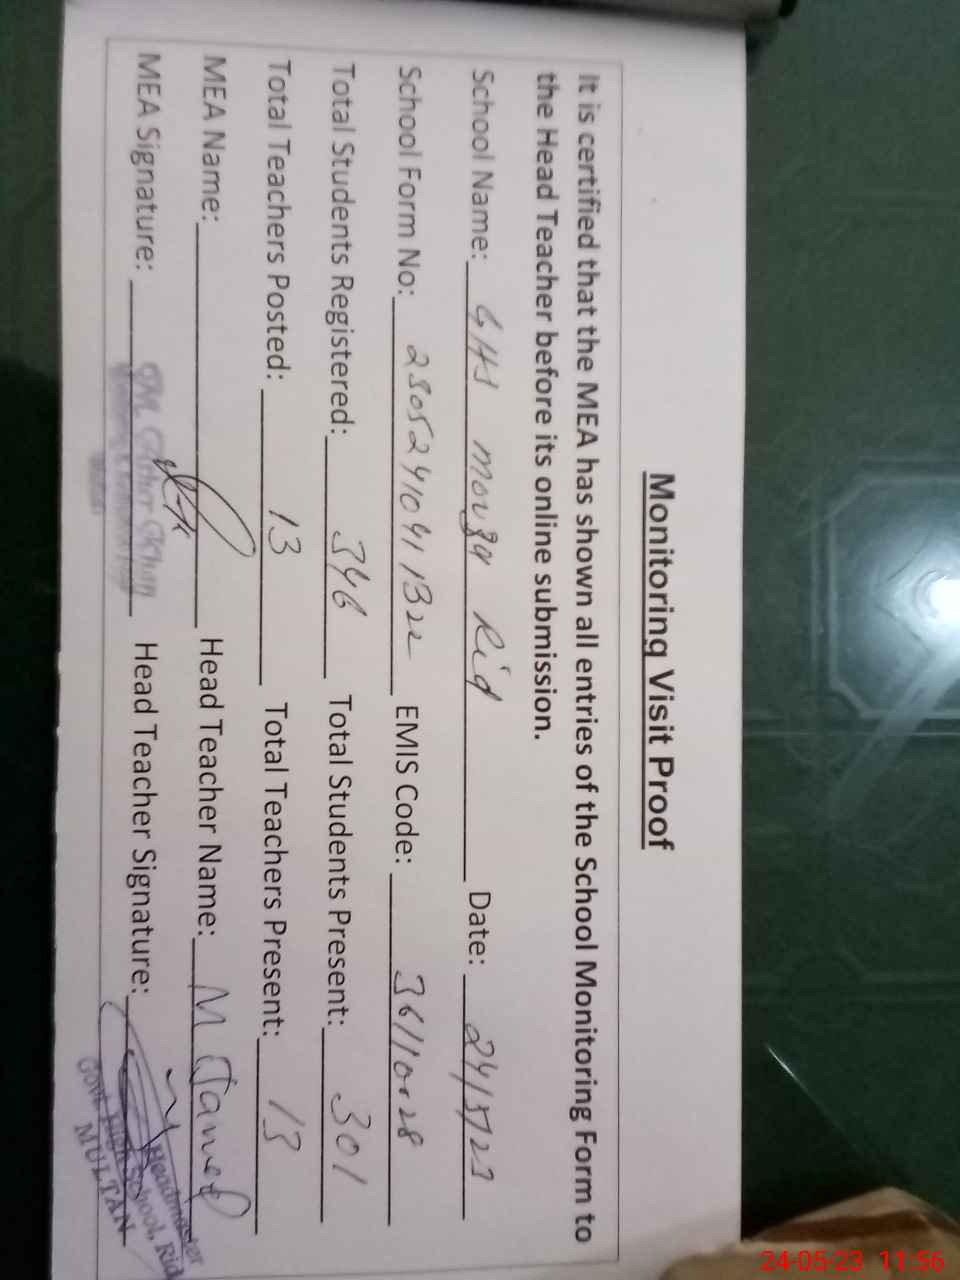 Monitoring Visit Proof
It is certified that the MEA has shown all entries of the School Monitoring Form to
the Head Teacher before its online submission.
School Name: GHS Rid Date: 24/5/23
School Form No: EMIS Code: 36110028
Total Students Registered: 346 Total Students Present: 301
Total Teachers Posted: 13 Total Teachers Present: 13
MEA Name: Head Teacher Name: M
MEA Signature: Head Teacher Signature:
Headmaster
Govt. High School, Rid
MULTAN
24-05-23 11:56